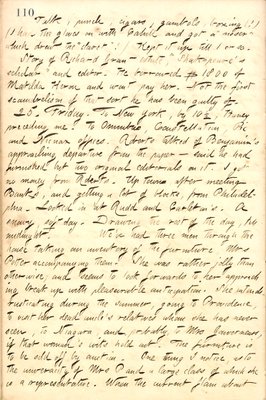 110
Talk, punch, cigars, gambols, boxing (!)
(I had the gloves on with Cahill and got a nose
which drew the "claret".) Kept it up till 1 or so.
Story of Richard Grant White, "Shakespeare's
scholar" and editor. He borrowed $1800 of
Matilda Heron and won't pay her. Not the first
scoundrelism of that sort he has been guilty of.
25. Friday. To New York, by 10 1/2, Haney
preceding me. To Omnibus, Constellation, Pic
and Nic-nax offices. Roberts talked of Benjamin's
approaching departure from the paper
furnished but two original editorials on it. I got
no money from Roberts. Up town after meeting
Banks, and getting a lot of blocks from Philadel-
phia. Looked in at Rudd and Carleton's. A
snowy day. Drawing the rest of the day, till
midnight. We've had three men through the
house taking an inventory of the furniture, Mrs
Potter accompanying them. She was rather jolly than
otherwise, and seems to look forwards to her approach-
ing break up with pleasurable anticipation. She intends
rusticating during the summer, going to Providence
to visit her dead uncle's relatives whom she has never
seen, to Niagara, and probably to Mrs Gouverneur,
if that woman's wits hold out. The furniture is
to be sold off by auction. One thing I notice, is to
the of Mrs P and a large class of which she
is a representative. When the current flows about